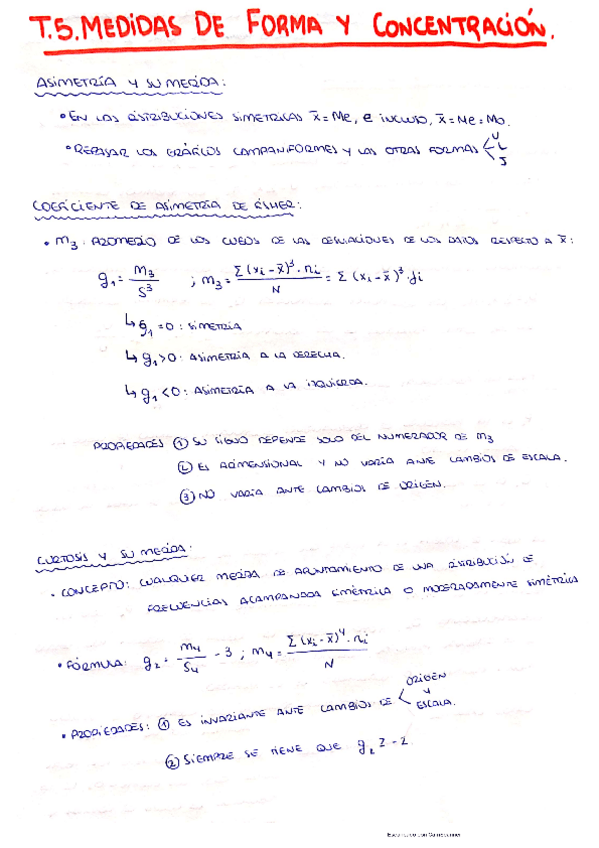 T.5. MEDIDAS DE FORMA Y CONCENTRACIÓN.
ASIMETRÍA Y SU MEDIDA:
• EN LAS DISTRIBUCIONES SIMETRICAS x̄ = Me, e INCLUSO, x̄ = Me = Mo.
• REPASAR LOS GRÁFICOS CAMPANIFORMES Y LAS OTRAS FORMAS < U L J
COEFICIENTE DE ASIMETRÍA DE FISHER:
• m₃: PROMEDIO DE LOS CUBOS DE LAS DESVIACIONES DE LOS DATOS RESPECTO A x̄:
g₁ = m₃ / S³ ; m₃ = Σ (xᵢ - x̄)³ · nᵢ / N = Σ (xᵢ - x̄)³ · fᵢ
↳ g₁ = 0: SIMETRÍA
↳ g₁ > 0: ASIMETRÍA A LA DERECHA.
↳ g₁ < 0: ASIMETRÍA A LA IZQUIERDA.
PROPIEDADES ① SU SIGNO DEPENDE SOLO DEL NUMERADOR DE m₃
② ES ADIMENSIONAL Y NO VARÍA ANTE CAMBIOS DE ESCALA.
③ NO VARÍA ANTE CAMBIOS DE ORIGEN.
CURTOSIS Y SU MEDIDA:
• CONCEPTO: CUALQUIER MEDIDA DE APUNTAMIENTO DE UNA DISTRIBUCIÓN DE
FRECUENCIAS ACAMPANADA SIMÉTRICA O MODERADAMENTE SIMÉTRICA
• FÓRMULA: g₂ = m₄ / S₄ - 3 ; m₄ = Σ (xᵢ - x̄)⁴ · nᵢ / N
• PROPIEDADES: ① ES INVARIANTE ANTE CAMBIOS DE < ORIGEN Y ESCALA.
② SIEMPRE SE TIENE QUE g₂ ≥ -2
Escaneado con CamScanner